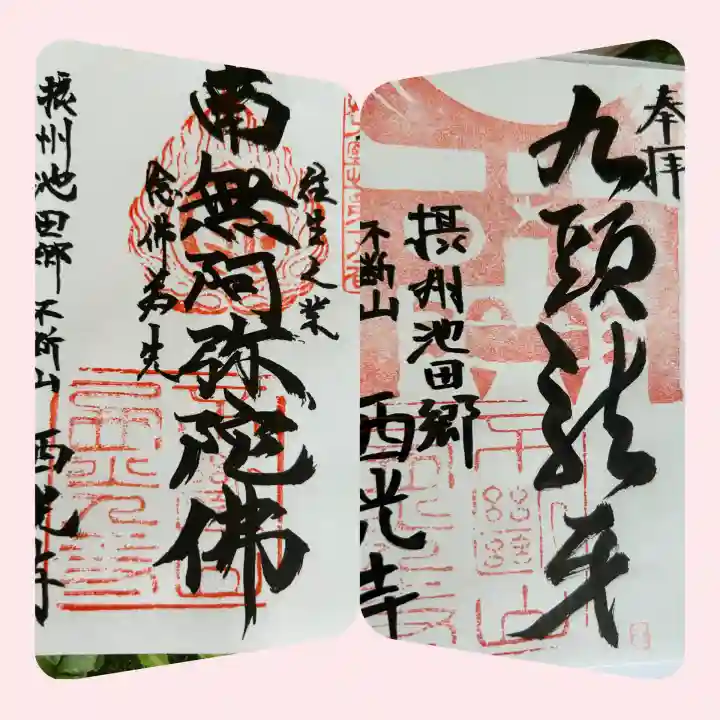 奉拝
九頭龍牙
摂州池田郷
不断山
西光寺
往生之業
南無阿弥陀佛
念佛為先
摂州池田郷 不断山 西光寺